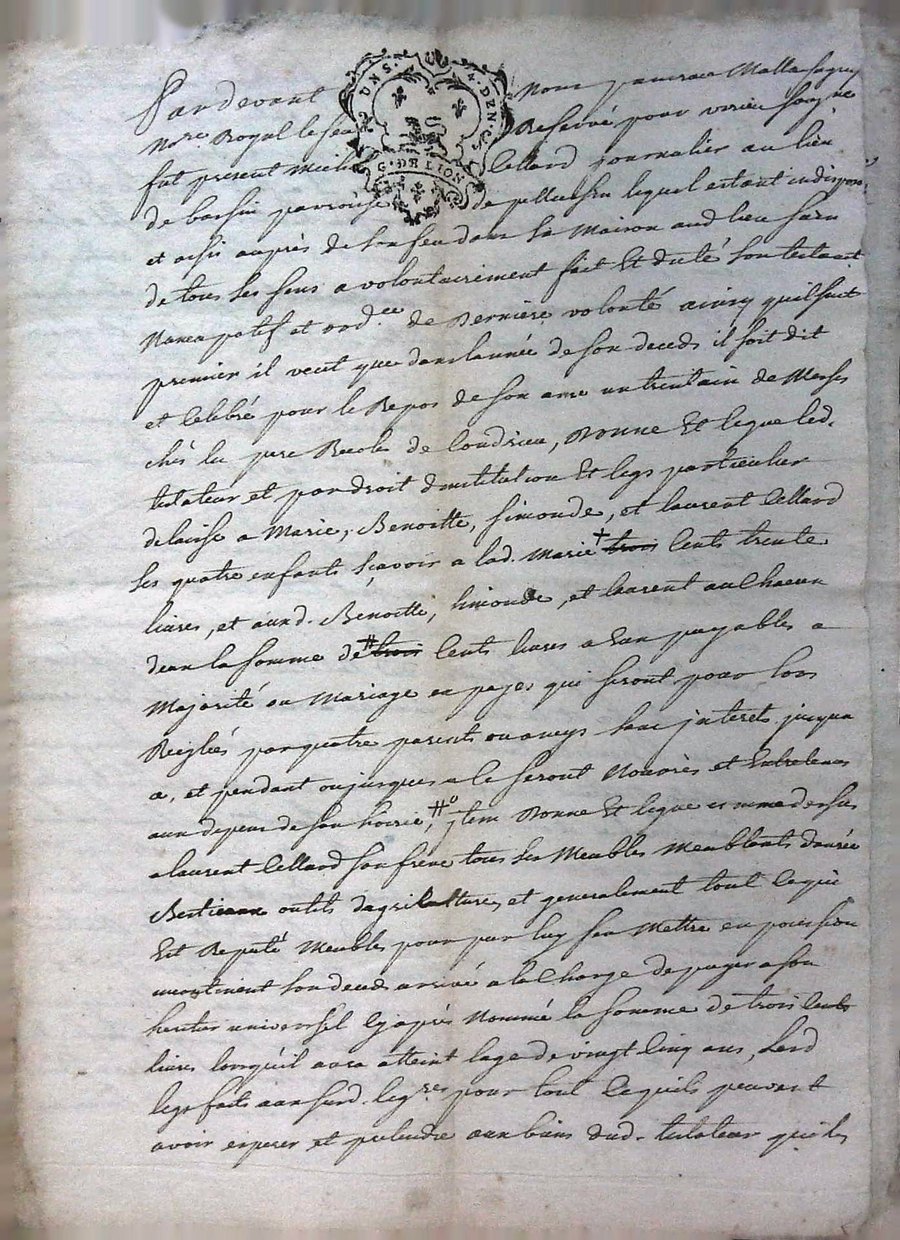 Pardevant Nous
No.re Royal
DNS. 4. DEN. G. DE LION
Reservé pour
fut present Michel Cellard journalier au lieu
de bassin parroisse de pellussin lequel estant indisposé
et assis auprès de son feu dans sa Maison aud. lieu sain
de tous ses sens a volontairement fait Et dicté son testament
Noncupatif et ord.ce de Derniere volonté ainsy quil suit
premier il veut que dans lannée de son deceds il soit dit
et celebré pour le Repos de son ame un trentain de Messes
chés les pere Recolés de Condrieu, Donne Et legue led.
testateur et par droit dinstitution Et legs particulier
delaisse a Marie, Benoitte, simonde, et laurent Cellard
ses quatre enfants sçavoir a lad. Marie + trois Cents trente
livres, et auxd. Benoitte, simonde, et laurent au Chacun
deux la somme de # trois Cents livres a Eux payables a
Majorité ou Mariage en payes qui seront pour lors
Reiglés par quatre parents ou amys sans jnterets jusqua
ce, et pendant ou jusques a ce seront Nourris et Entretenus
aux depens de son hoirie, #° jtem Donne Et legue comme dessus
a laurent Cellard son frère tous ses Meubles Meublants danrée
Bestieaux outils dagriculture, et generalement tout ce qui
Est Reputé Meubles pour par luy sen Mettre en possession
incontinent son deceds arrivé a la Charge de payer a son
heritier universel cy après Nommé la somme de trois Cents
livres lorsquil aura atteint lage de vingt Cinq ans, Lesd.
legs faits aux susd. leg.res pour tout ce quils peuvent
avoir esperer et pretendre aux biens dud. testateur quil les